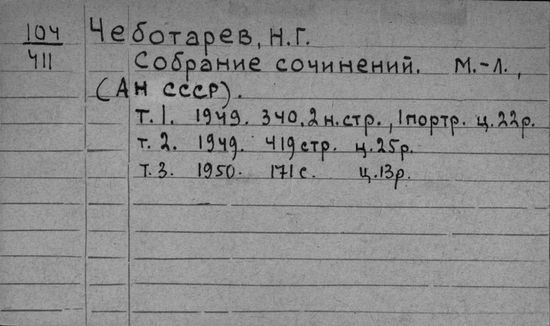 104
411
Чеботарев, Н.Г.
Собрание сочинений. М.-Л.,
(АН СССР).
Т.1. 1949. 340, 2 н.стр., 1 портр. ц.22р.
Т.2. 1949. 419 стр. ц.25р.
Т.3. 1950. 171 с. ц.13р.